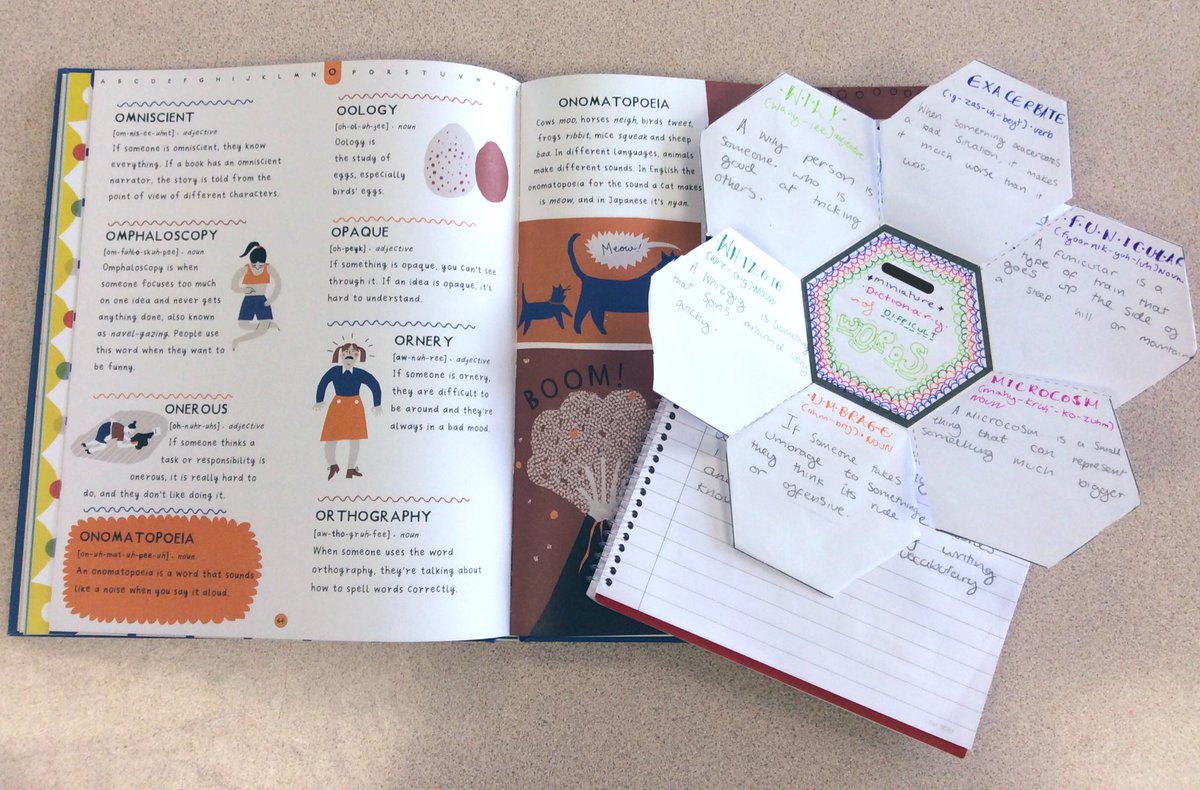 A B C D E F G H I J K L M N O P Q R S T U V W X
OMNISCIENT
[om-nis-ee-uhnt] · adjective
If someone is omniscient, they know
everything. If a book has an omniscient
narrator, the story is told from the
point of view of different characters.
OMPHALOSCOPY
[om-fuhlo-skuh-pee] · noun
Omphaloscopy is when
someone focuses too much
on one idea and never gets
anything done, also known
as navel-gazing. People use
this word when they want to
be funny.
ONEROUS
[oh-nuhr-uhs] · adjective
If someone thinks a
task or responsibility is
onerous, it is really hard to
do, and they don't like doing it.
ONOMATOPOEIA
[on-uh-mat-uh-pee-uh] · noun
An onomatopoeia is a word that sounds
like a noise when you say it aloud.
OOLOGY
[oh-ol-uh-jee] · noun
Oology is
the study of
eggs, especially
birds' eggs.
OPAQUE
[oh-peyk] · adjective
If something is opaque, you can't see
through it. If an idea is opaque, it's
hard to understand.
ORNERY
[aw-nuh-ree] · adjective
If someone is ornery,
they are difficult to
be around and they're
always in a bad mood.
ORTHOGRAPHY
[aw-tho-gruh-fee] · noun
When someone uses the word
orthography, they're talking about
how to spell words correctly.
ONOMATOPOEIA
Cows moo, horses neigh, birds tweet,
frogs ribbit, mice squeak and sheep
baa. In different languages, animals
make different sounds. In English the
onomatopoeia for the sound a cat makes
is meow, and in Japanese it's nyan.
Meow!
BOOM!
·WILY·
(Wahy-lee) adjective
A wily person is
someone who is
good at tricking
others.
EXACERBATE
(ig-zas-uh-beyt)·verb
When something exacerbates
a bad sitation, it makes
it much worse than it
was.
·FUNICULAR
(fyoo-nik-yuh-luh) Noun
A funicular is a
type of train that
goes up the side of
a steep hill or mountain
WHIZGIG
(wiz-gig) Noun
A Whizgig is something
that spins around
quickly.
·miniature·
Dictionary
~of
Difficult
WORDS
MICROCOSM
(mahy-kruh-ko-zuhm)
NOUN
A microcosm is a small
thing that can represent
something much
bigger
·UMBRAGE·
(uhm-brij)·NOUN
If someone takes
umbrage to something
they think its rude
or offensive.
an
know
writing
vocabulary